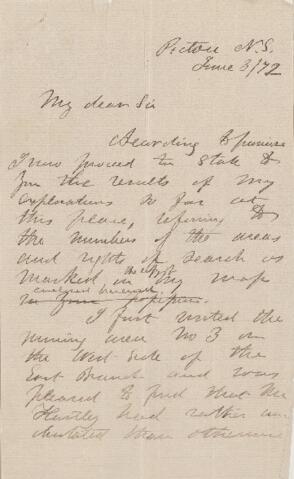 Pictou N.S.
June 3/72
My dear Sir
According to promise
I now proceed to State to
you the results of my
explorations so far at
this place, referring to
the numbers of the areas
and rights of search as
marked in the map
enclosed herewith
in your
I first visited the
mining area No 3 on
the West side of the
East Branch and was
pleased to find that Mr
Hartley had rather un-
derstated than otherwise